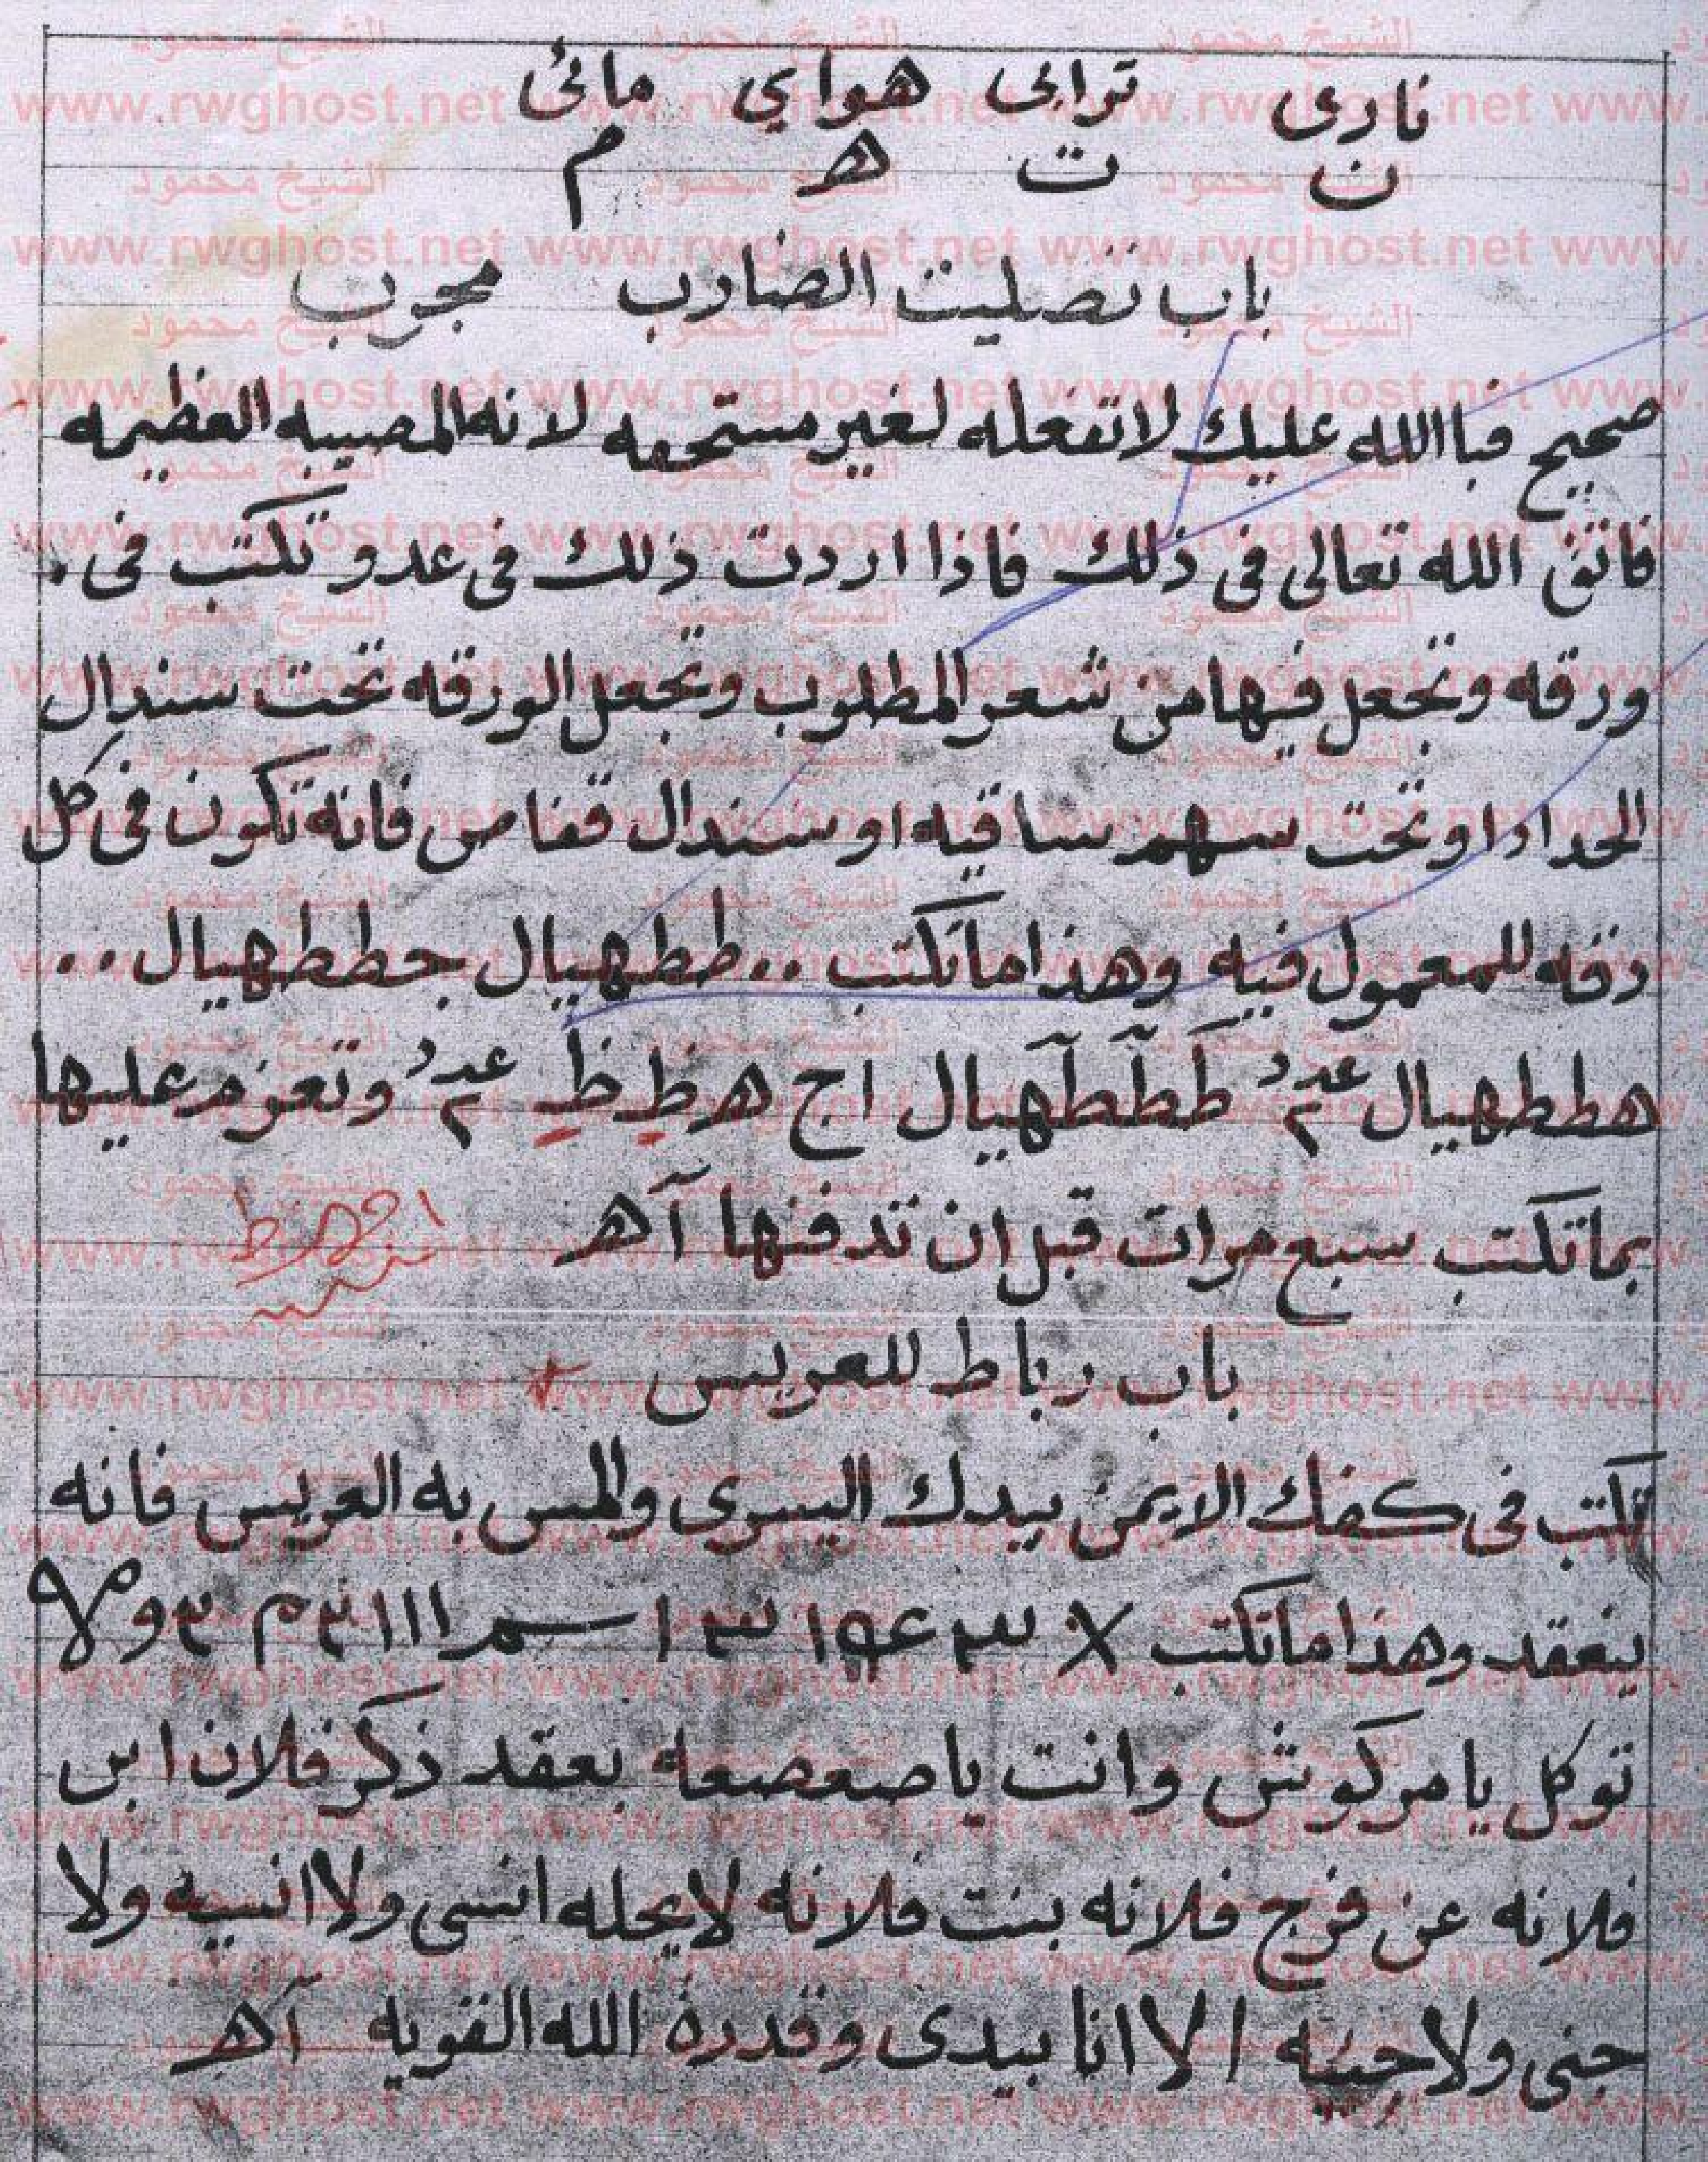 نارى ترابى هواي مائى
ن ت ه م
باب تصليت الضارب مجرب
صحيح فباالله عليك لاتفعله لغير مستحقه لانه المصيبه العظيمه
فاتق الله تعالى فى ذلك فاذا اردت ذلك فى عدو تكتب فى.
ورقه وتجعل فيها من شعر المطلوب وتجعل الورقه تحت سندال
الحداد او تحت سهم ساقيه او سندال قفاص فانه تكون فى كل
دقه للمعمول فيه وهذا ماتكتب .. ططهيال جططهيال ..
هططهيال عدد ٢ طططهيال اج ه ظ ظ عدد ٢ وتعزم عليها
بماتكتب سبع مرات قبل ان تدفنها آه
باب رباط للعريس
تكتب فى كفك الايمن بيدك اليسرى والمس به العريس فانه
ينعقد وهذا ماتكتب
توكل يا مركوش وانت يا صعصعه بعقد ذكر فلان ابن
فلانه عن فرج فلانه بنت فلانه لايحله انسى ولا انسيه ولا
جنى ولا جنيه الا انا بيدى وقدرة الله القويه آه
www.rwghost.net
الشيخ محمود